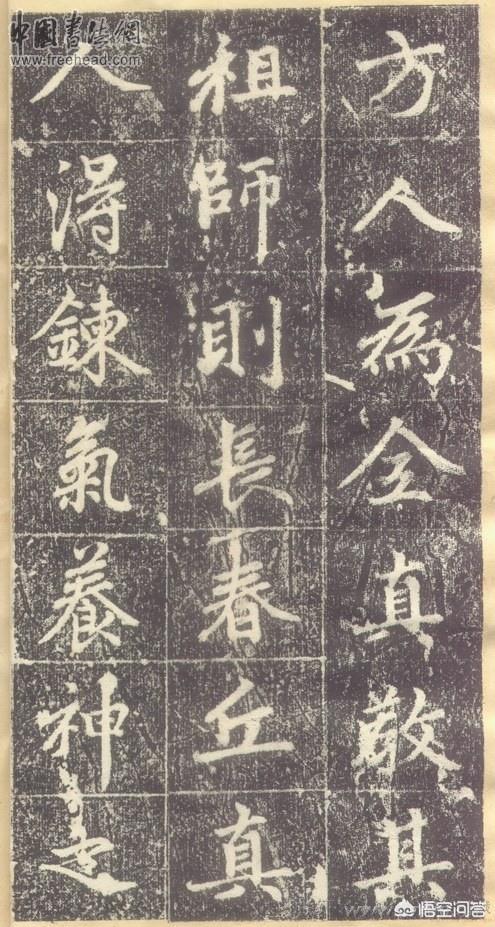 中國書法網
www.freehead.com
方人為全真教其
祖師則長春丘真
人得鍊氣養神
悟空问答